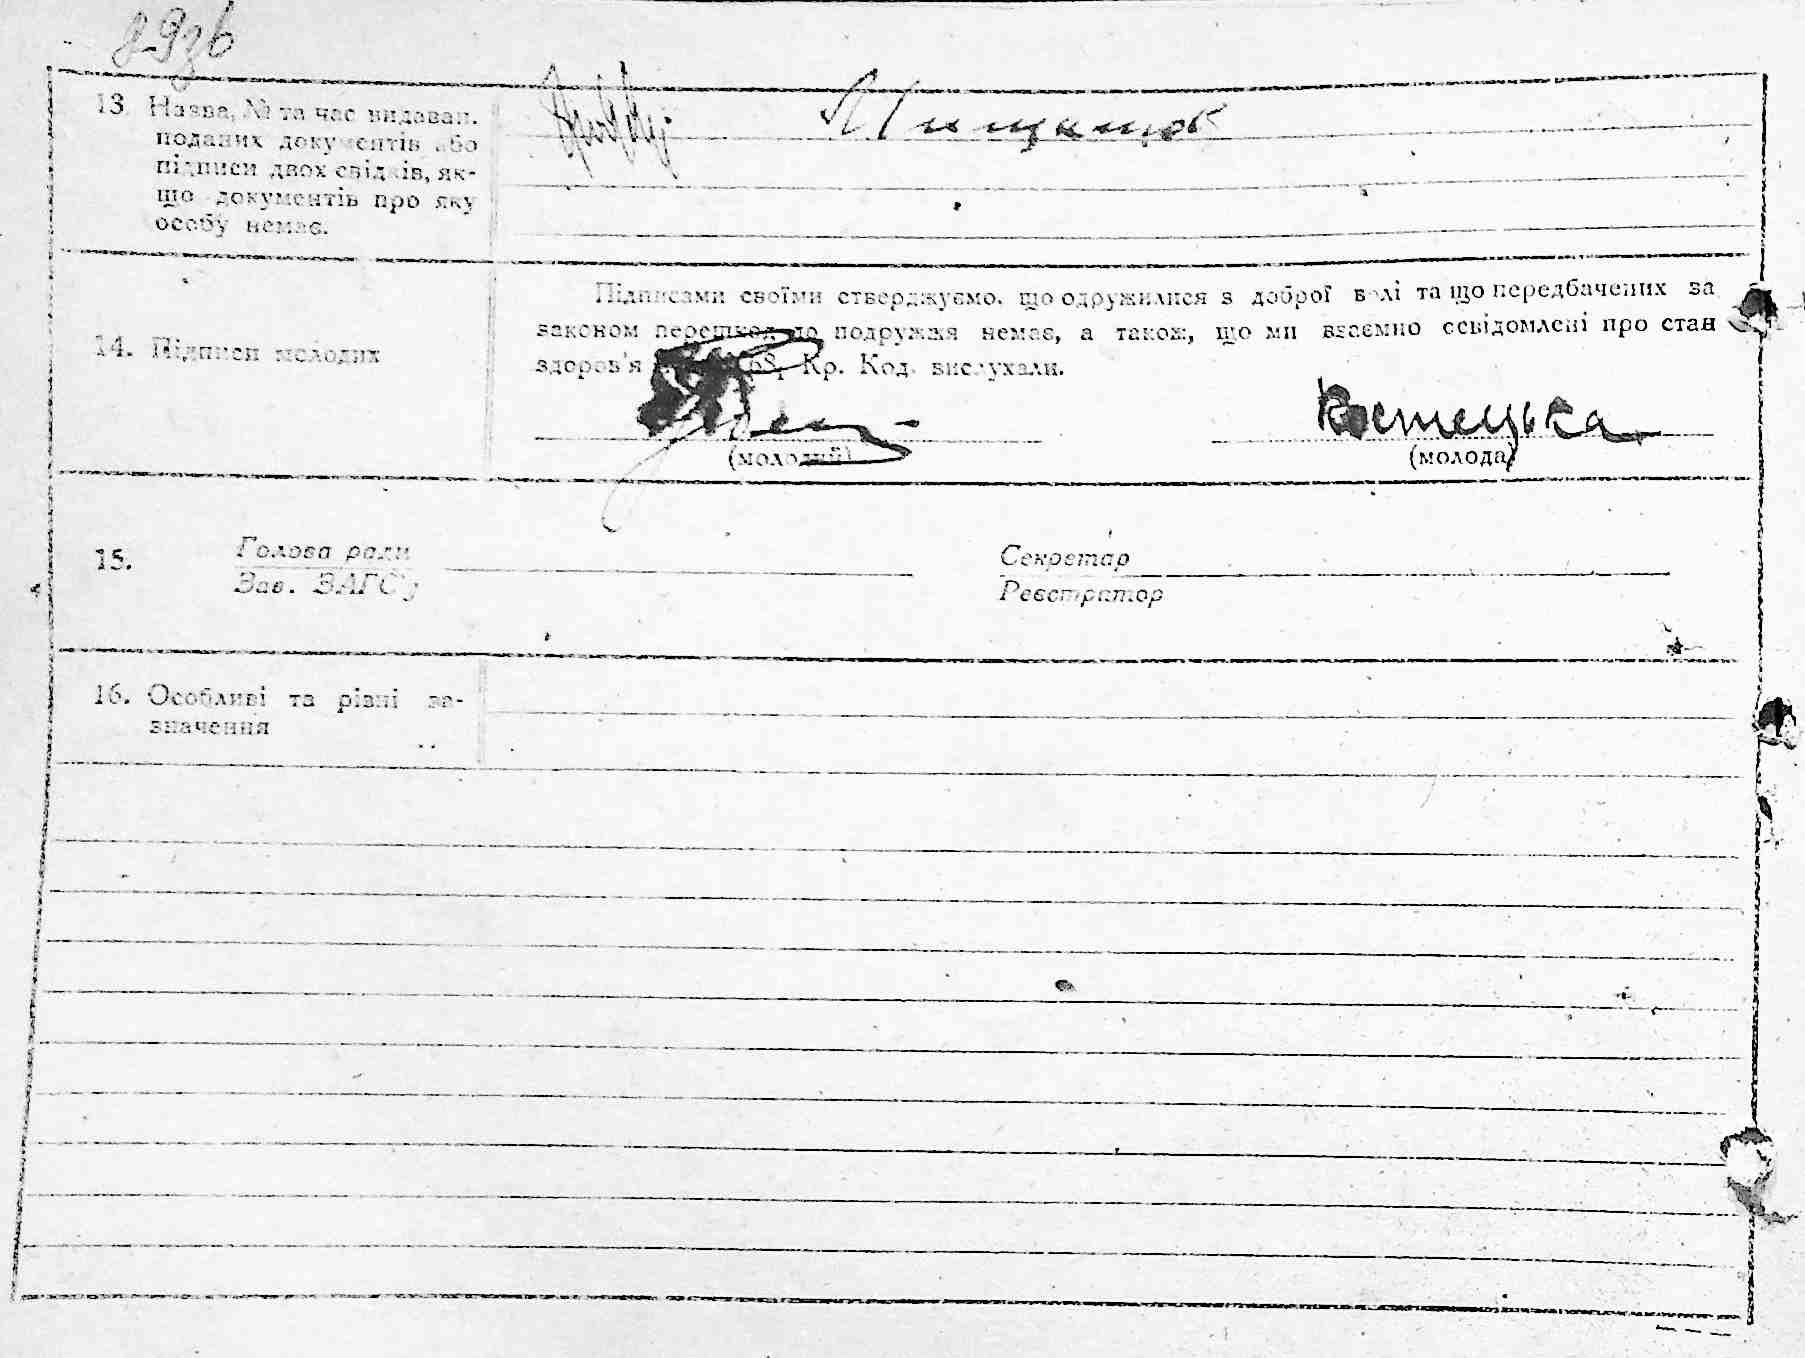 13. Назва, № та час видаван.
поданих документів або
підписи двох свідків, як-
що документів про яку
особу немає.
Підписами своїми стверджуємо, що одружилися з доброї волі та що передбачених за
законом перешкод до подружжя немає, а також, що ми взаємно освідомлені про стан
здоров'я Кр. Код. вислухали.
14. Підписи молодих
Костецька
(молодий) (молода)
15. Голова ради Секретар
Зав. ЗАГС'у Реєстратор
16. Особливі та різні за-
значення